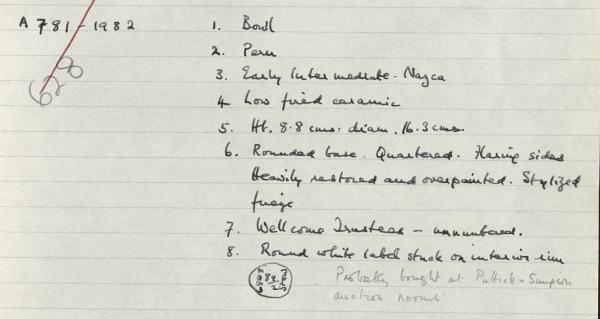 A 781-1982
628
1. Bowl
2. Peru
3. Early Intermediate - Nazca
4 Low fired ceramic
5. Ht. 8.8 cms: diam. 16.3 cms.
6. Rounded base. Quartered. Flaring sides
Heavily restored and overpainted. Stylized
frieze
7. Wellcome Trustees - unnumbered.
8. Round white label stuck on interior rim
Probably bought at Puttick & Simpson
auction rooms